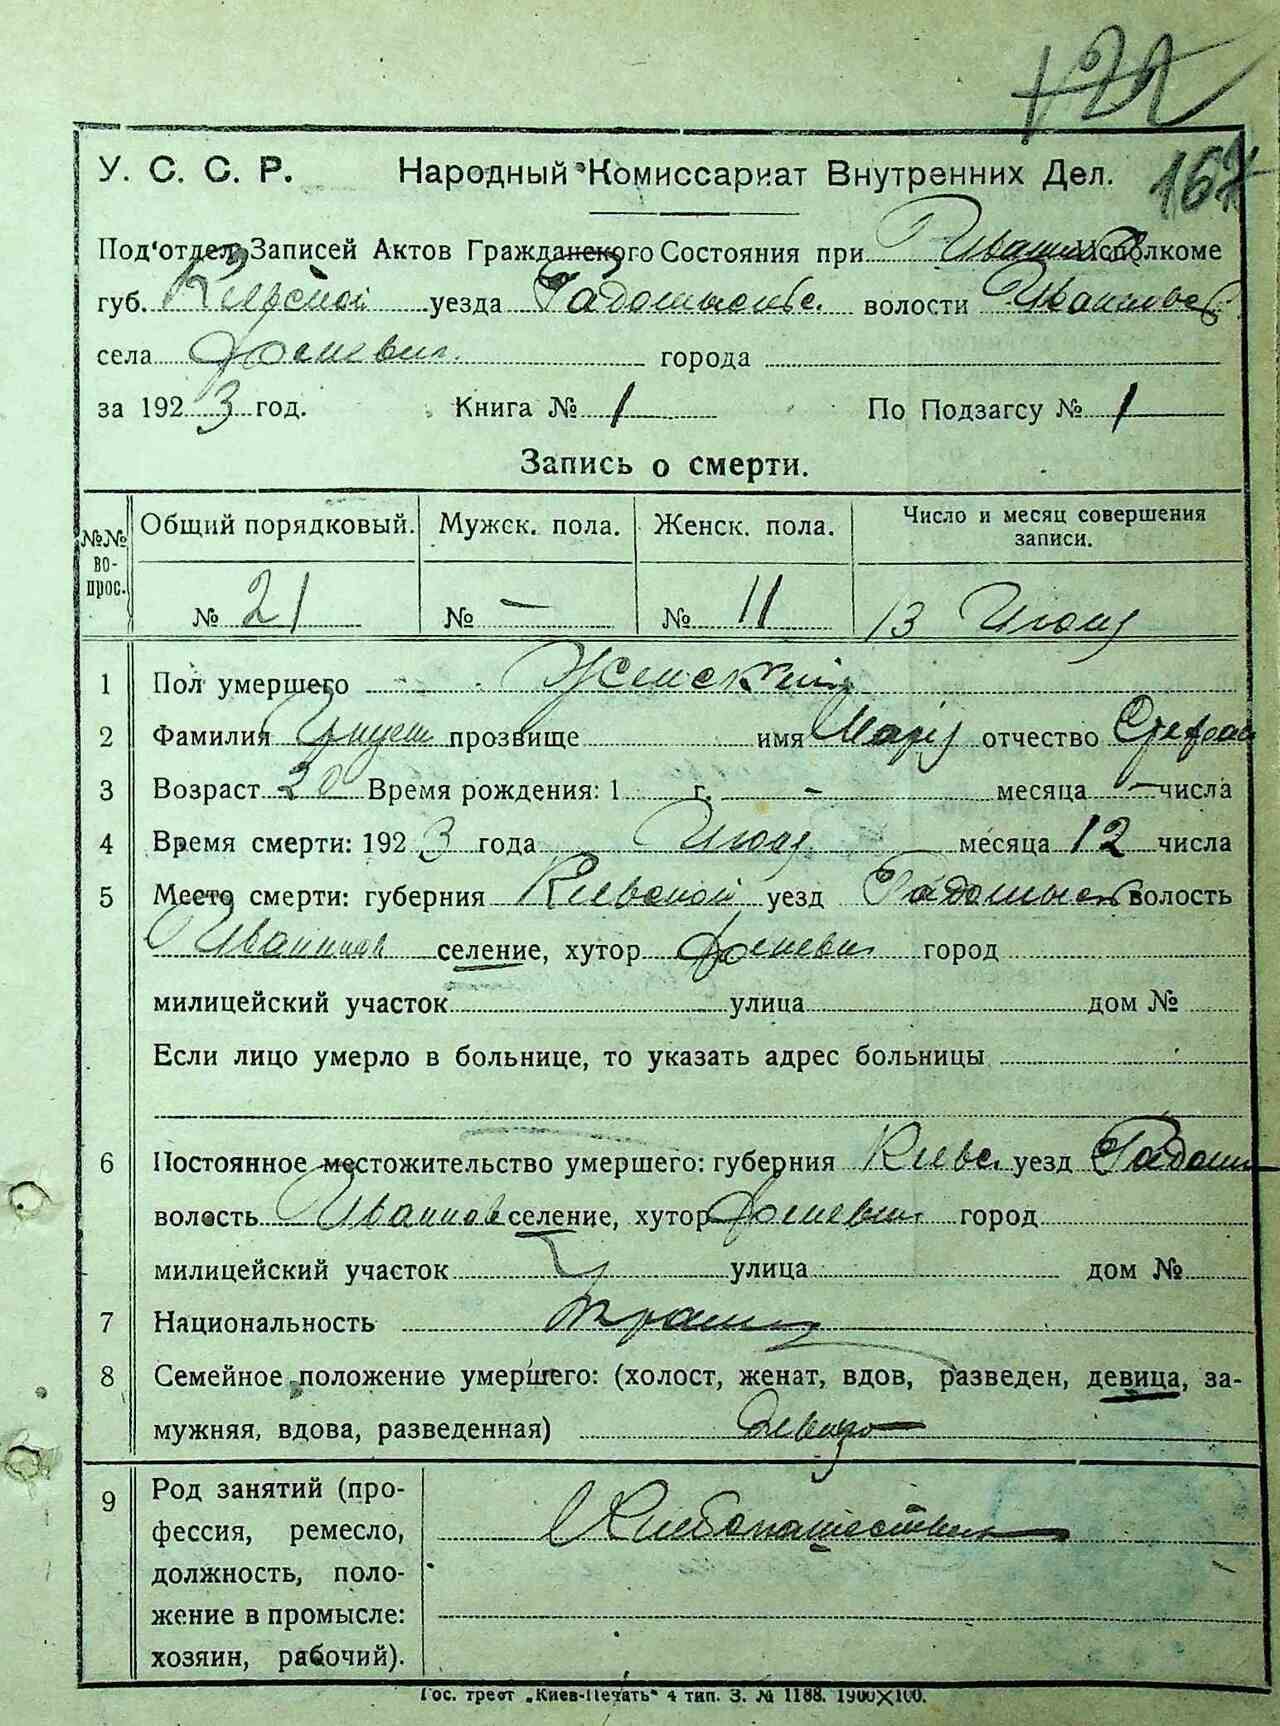 122
167
У. С. С. Р. Народный Комиссариат Внутренних Дел.
Под'отдел Записей Актов Гражданского Состояния при Исполкоме
губ. Киевской уезда Радомысльс. волости Иванковс
села города
за 1923 год. Книга № 1 По Подзагсу № 1
Запись о смерти.
№№ вопрос. Общий порядковый. Мужск. пола. Женск. пола. Число и месяц совершения записи.
№ 21 № — № 11 13 Июня
1 Пол умершего Женский
2 Фамилия прозвище имя Мария отчество Стефан
3 Возраст 30 Время рождения: 1 г. - месяца — числа
4 Время смерти: 1923 года Июня месяца 12 числа
5 Место смерти: губерния Киевской уезд Радомысл волость
Иванков селение, хутор город
милицейский участок улица дом №
Если лицо умерло в больнице, то указать адрес больницы
6 Постоянное местожительство умершего: губерния Киевс. уезд Радом
волость Иванков селение, хутор город
милицейский участок улица дом №
7 Национальность
8 Семейное положение умершего: (холост, женат, вдов, разведен, девица, за-
мужняя, вдова, разведенная) Девица
9 Род занятий (про-
фессия, ремесло,
должность, поло-
жение в промысле:
хозяин, рабочий).
Хлебопашество
Гос. трест „Киев-Печать" 4 тип. З. № 1188. 1900×100.